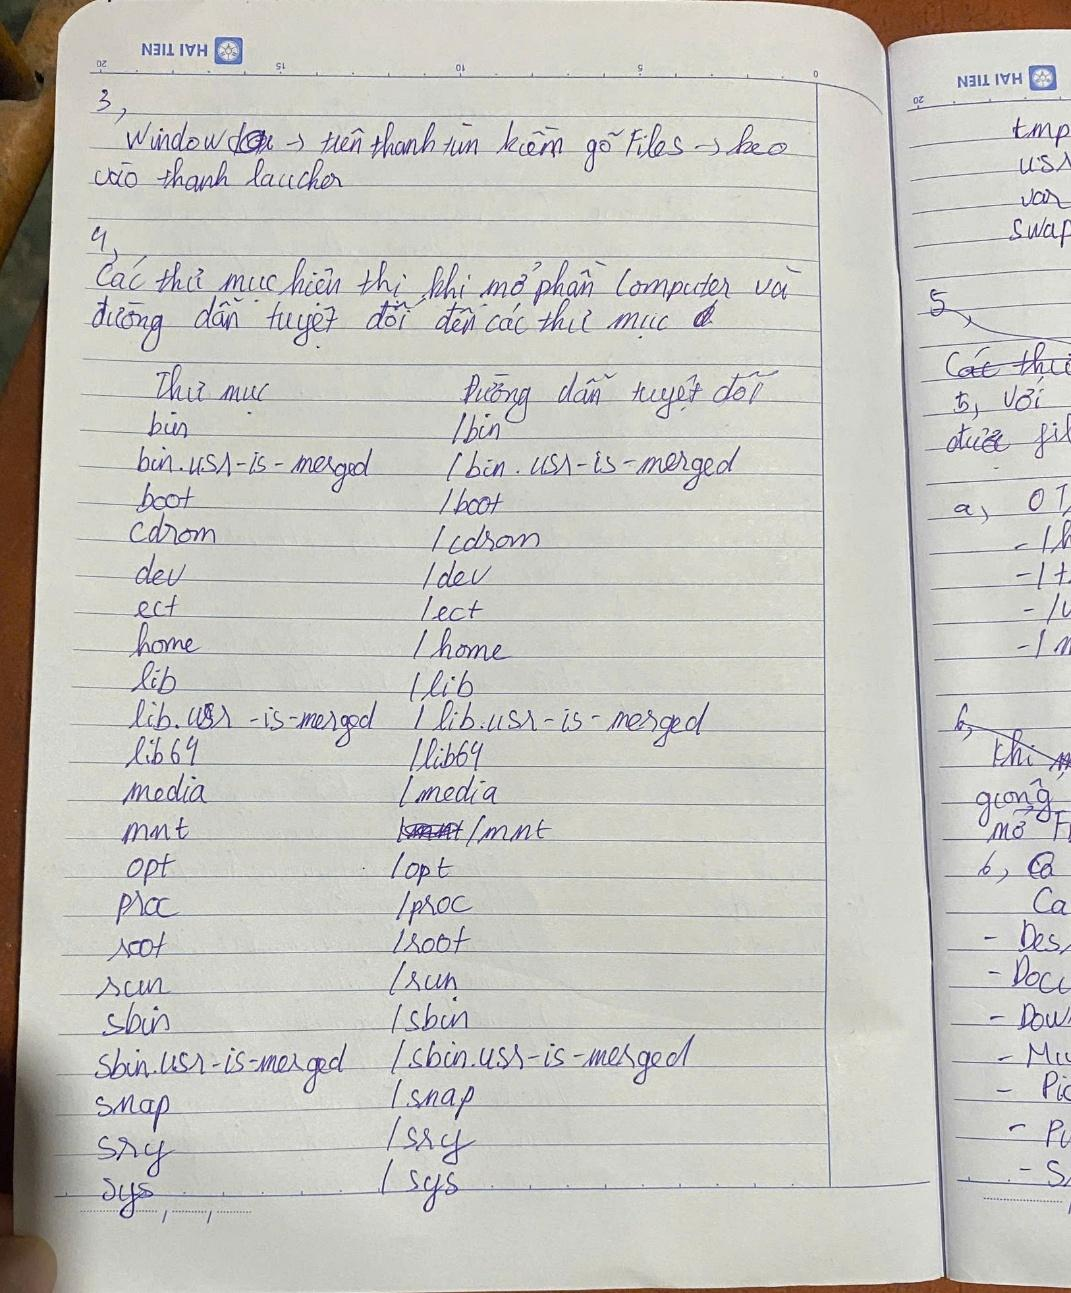 HẢI TIẾN
20 15 10 5 0
3,
Window → trên thanh tìm kiếm gõ Files → kéo
vào thanh laucher
4,
Các thư mục hiển thị khi mở phần Computer và
đường dẫn tuyệt đối đến các thư mục
Thư mục Đường dẫn tuyệt đối
bin /bin
bin.usr-is-merged /bin.usr-is-merged
boot /boot
cdrom /cdrom
dev /dev
ect /ect
home /home
lib /lib
lib.usr-is-merged /lib.usr-is-merged
lib64 /lib64
media /media
mnt /mnt
opt /opt
proc /proc
root /root
run /run
sbin /sbin
sbin.usr-is-merged /sbin.usr-is-merged
snap /snap
srv /srv
sys /sys
HẢI TIẾN
20
tmp
usr
var
swap
5,
Các thư
5, Với
được fil
a, 0
- /h
- /t
- /
- / m
6,
Khi
giống
mở F
6,
Ca
- Des
- Docu
- Dow
- Mu
- Pic
- Pu
- S